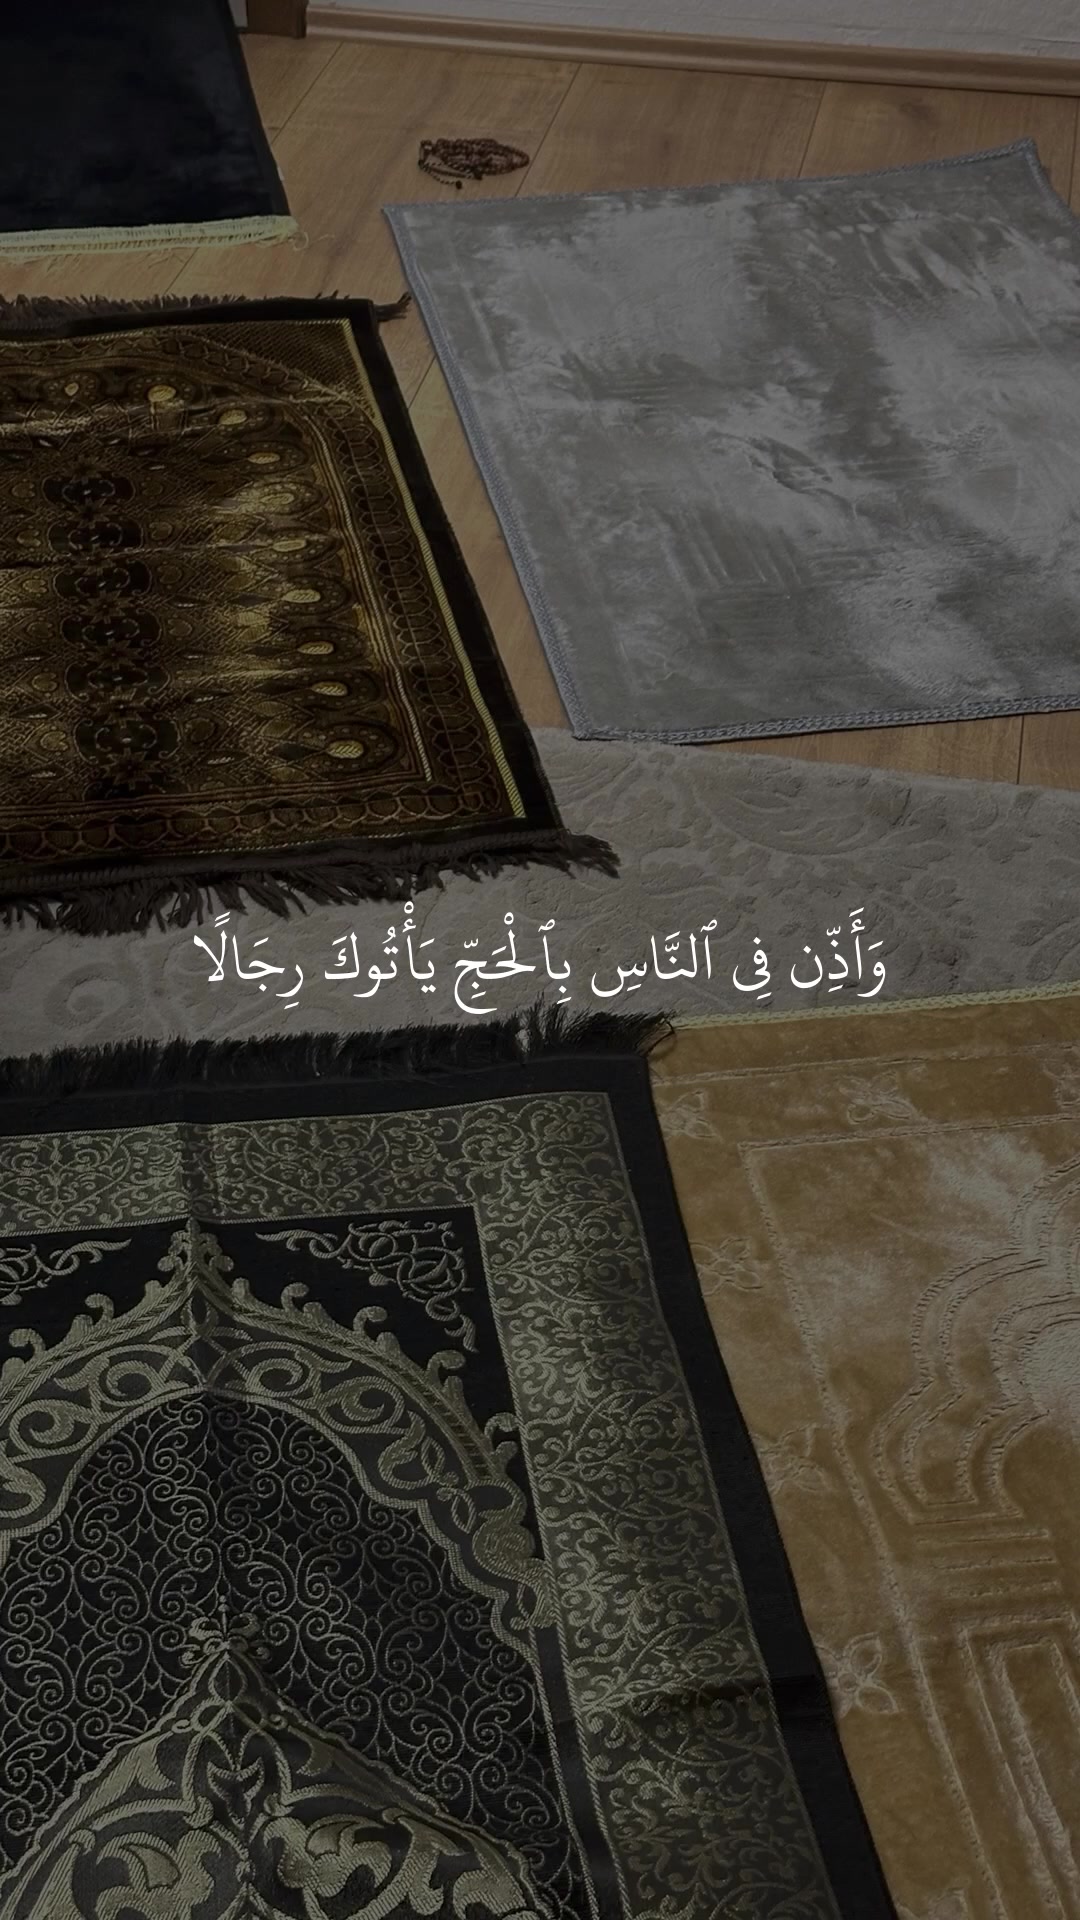 وَأَذِّن فِى ٱلنَّاسِ بِٱلْحَجِّ يَأْتُوكَ رِجَالًا